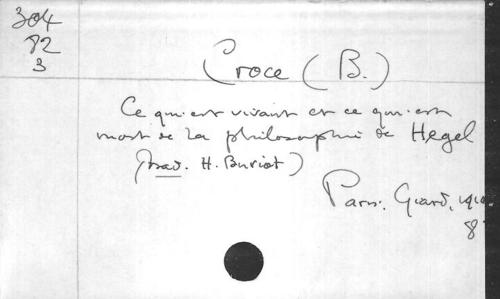 304
82
3
Croce (B.)
Ce qui est vivant et ce qui est
mort de la philosophie de Hegel
(trad. H. Buriot)
Paris. Giard, 1910
8°